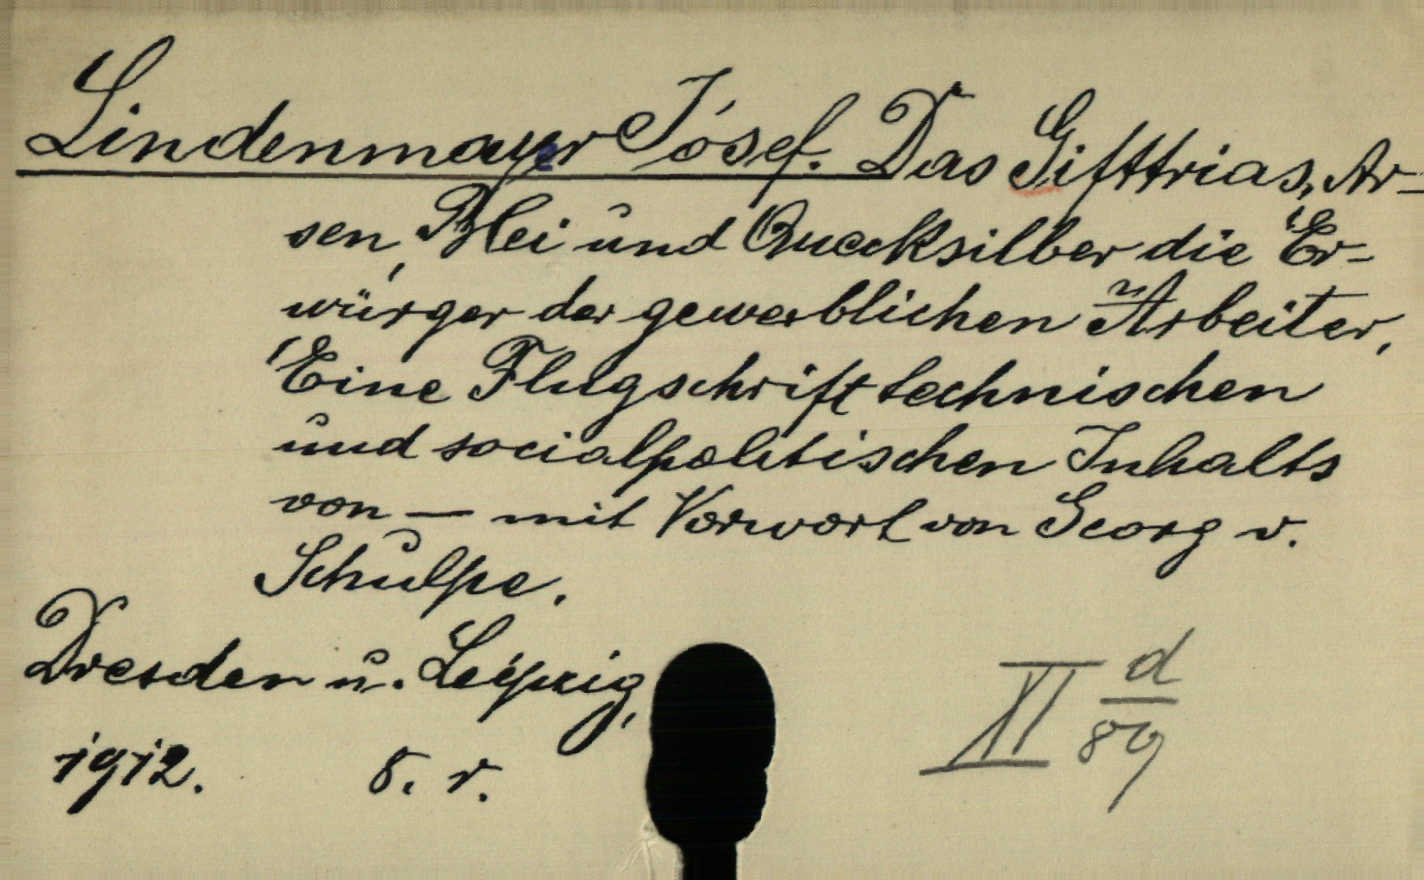 Lindenmayer Jósef. Das Gifttrias, Ar-
sen, Blei und Quecksilber die Er-
würger der gewerblichen Arbeiter.
Eine Flugschrift technischen
und socialpolitischen Inhalts
von — mit Vorwort von Georg v.
Schulpe.
Dresden u. Leipzig,
1912. 8. r.
XI d/89